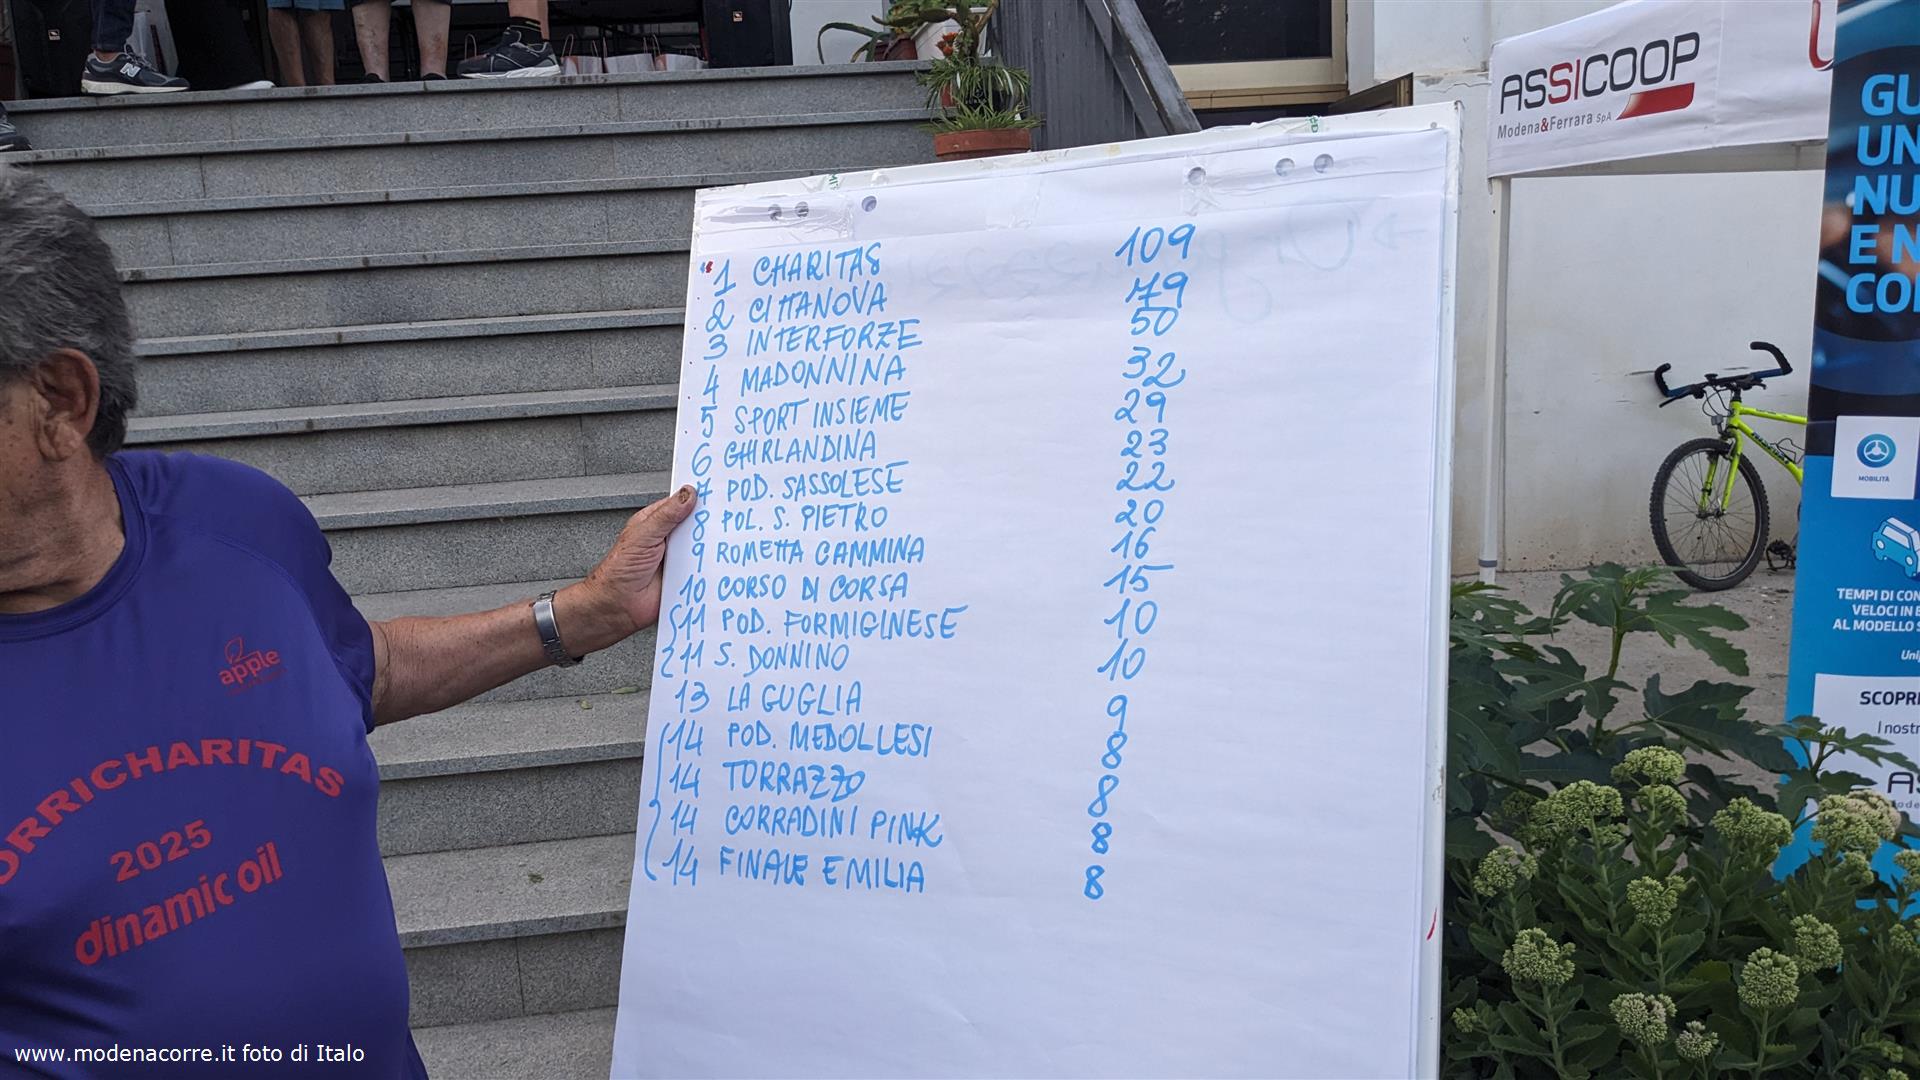 1 CHARITAS 109
2 CITTANOVA 79
3 INTERFORZE 50
4 MADONNINA 32
5 SPORT INSIEME 29
6 GHIRLANDINA 23
7 POD. SASSOLESE 22
8 POL. S. PIETRO 20
9 ROMETTA CAMMINA 16
10 CORSO DI CORSA 15
11 POD. FORMIGINESE 10
11 S. DONNINO 10
13 LA GUGLIA 9
14 POD. MEDOLLESI 8
14 TORRAZZO 8
14 CORRADINI PINK 8
14 FINALE EMILIA 8
ASSICOOP
Modena&Ferrara SpA
GU
UN
NU
E N
CO
MOBILITÀ
TEMPI DI CON
VELOCI IN
AL MODELLO S
Uni
SCOPRI
I nostr
AS
apple
ORRICHARITAS
2025
dinamic oil
www.modenacorre.it foto di Italo